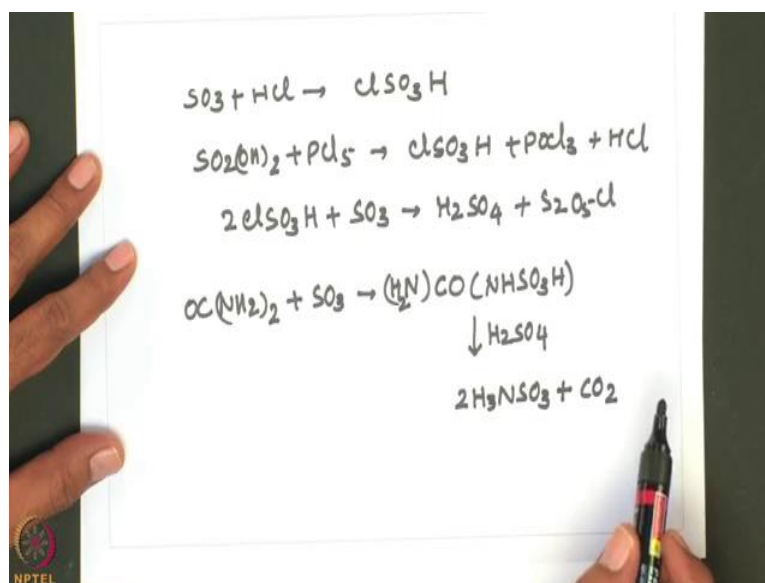 SO3 + HCl → ClSO3H
SO2(OH)2 + PCl5 → ClSO3H + POCl3 + HCl
2ClSO3H + SO3 → H2SO4 + S2O5-Cl
OC(NH2)2 + SO3 → (H2N)CO(NHSO3H)
↓ H2SO4
2H3NSO3 + CO2
NPTEL